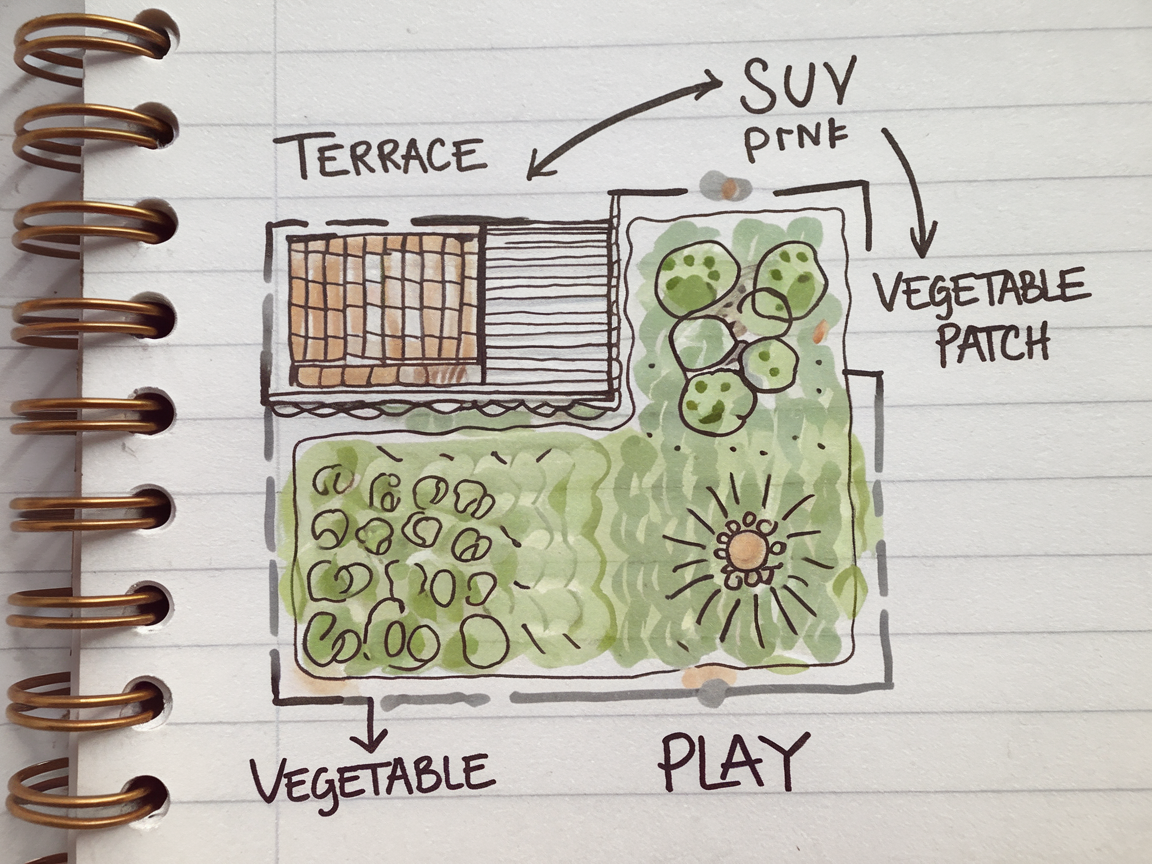 SUV
TERRACE
VEGETABLE
PATCH
VEGETABLE
PLAY